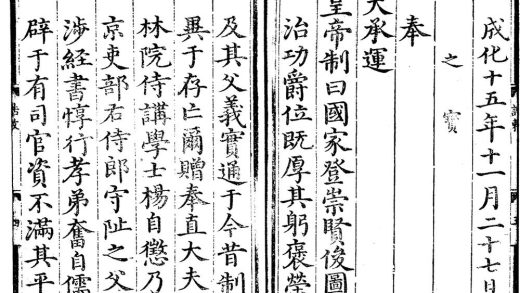 成化十五年十一月二十七日
之寶
奉
天承運
皇帝制曰國家登崇賢俊圖
治功爵位既厚其躬褒榮
及其父義實通于今昔制
異于存亡爾贈奉直大夫
林院侍講學士楊自懲乃
京吏部右侍郎守阯之父
涉經書惇行孝弟奮自儒
辟于有司官資不滿其平